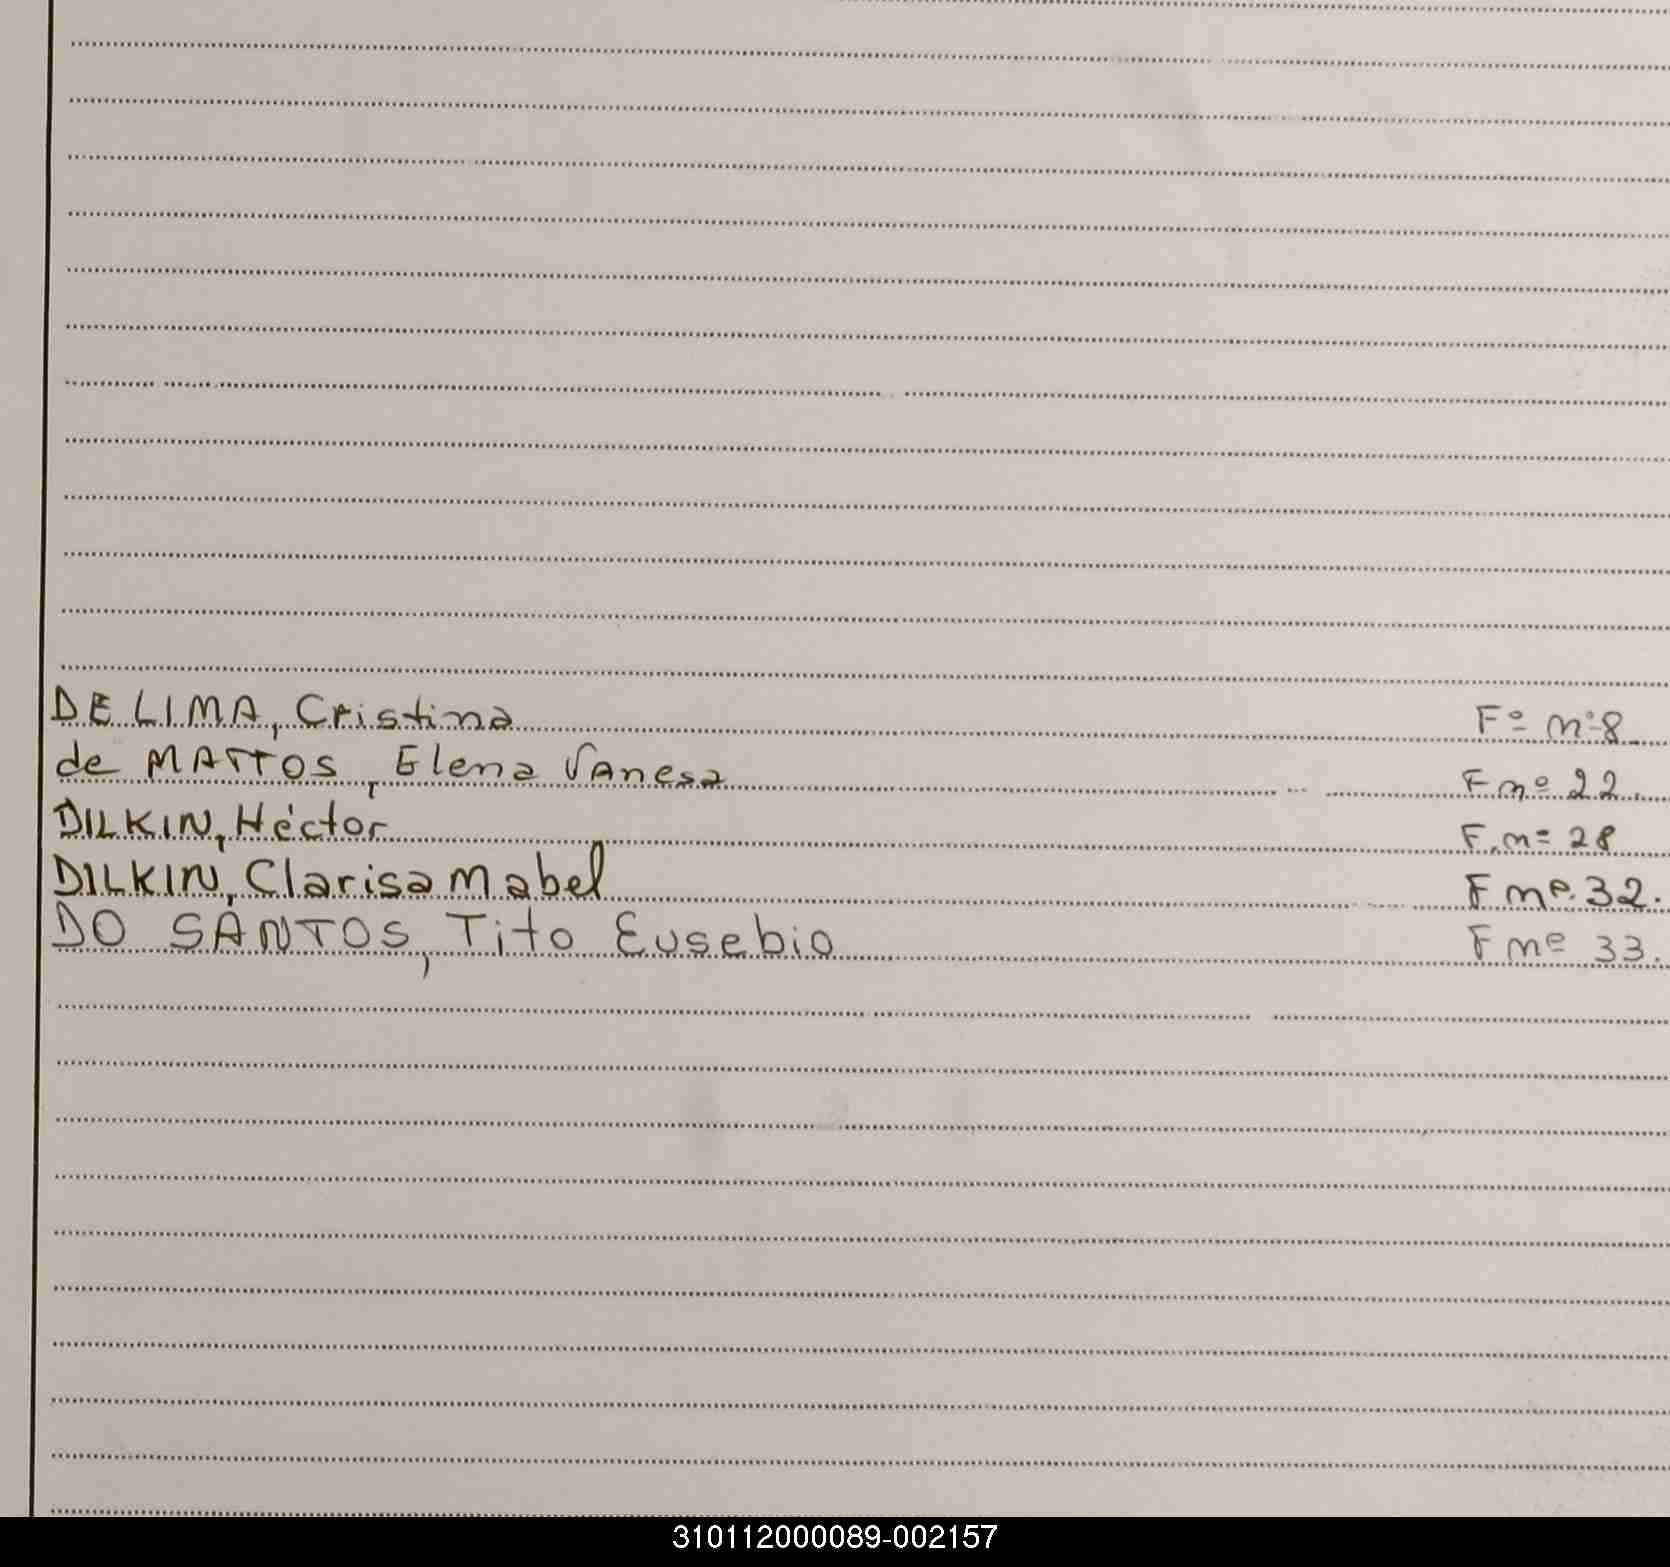 DE LIMA, Cristina Fº nº 8
de MATTOS, Elena Vanesa F nº 22.
DILKIN, Héctor F. nº 28
DILKIN, Clarisa Mabel F nº. 32.
DO SANTOS, Tito Eusebio F nº 33.
310112000089-002157